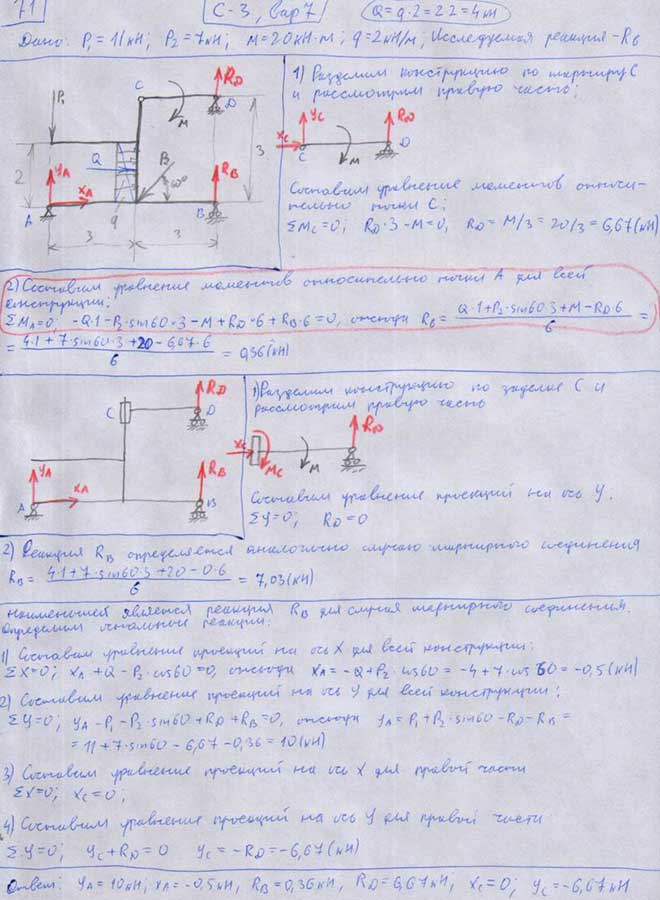 71
С-3, вар 7
Q = q·2 = 2·2 = 4кН
Дано: P₁ = 11кН; P₂ = 7кН; M = 20кН·м; q = 2кН/м; Исследуемая реакция - R_B
P₁
C
M
R_D
D
2
Y_A
X_A
A
Q
q
P₂
60°
R_B
B
3
3
3
1) Разделим конструкцию по шарниру С
и рассмотрим правую часть:
X_C
Y_C
C
M
R_D
D
Составим уравнение моментов относи-
тельно точки С:
ΣM_C=0; R_D·3-M=0, R_D = M/3 = 20/3 = 6,67(кН)
2) Составим уравнение моментов относительно точки А для всей
конструкции:
ΣM_A=0: -Q·1-P₂·sin60·3-M+R_D·6+R_B·6=0, отсюда R_B = Q·1+P₂·sin60·3+M-R_D·6 / 6 =
= 4·1+7·sin60·3+20-6,67·6 / 6 = 0,36(кН)
C
R_D
D
Y_A
X_A
A
R_B
B
1) Разделим конструкцию по заделке С и
рассмотрим правую часть
X_C
M_C
M
R_D
Составим уравнение проекций на ось Y.
ΣY=0; R_D=0
2) Реакция R_B определяется аналогично случаю шарнирного соединения
R_B = 4·1+7·sin60·3+20-0·6 / 6 = 7,03(кН)
наименьшей является реакция R_B для случая шарнирного соединения.
Определим остальные реакции:
1) Составим уравнение проекций на ось X для всей конструкции:
ΣX=0; X_A+Q-P₂·cos60=0, отсюда X_A=-Q+P₂·cos60=-4+7·cos60=-0,5(кН)
2) Составим уравнение проекций на ось Y для всей конструкции:
ΣY=0; Y_A-P₁-P₂·sin60+R_D+R_B=0, отсюда Y_A=P₁+P₂·sin60-R_D-R_B=
= 11+7·sin60-6,67-0,36=10(кН)
3) Составим уравнение проекций на ось X для правой части
ΣX=0; X_C=0;
4) Составим уравнение проекций на ось Y для правой части
ΣY=0; Y_C+R_D=0 Y_C=-R_D=-6,67(кН)
Ответ: Y_A=10кН; X_A=-0,5кН, R_B=0,36кН, R_D=6,67кН, X_C=0; Y_C=-6,67кН